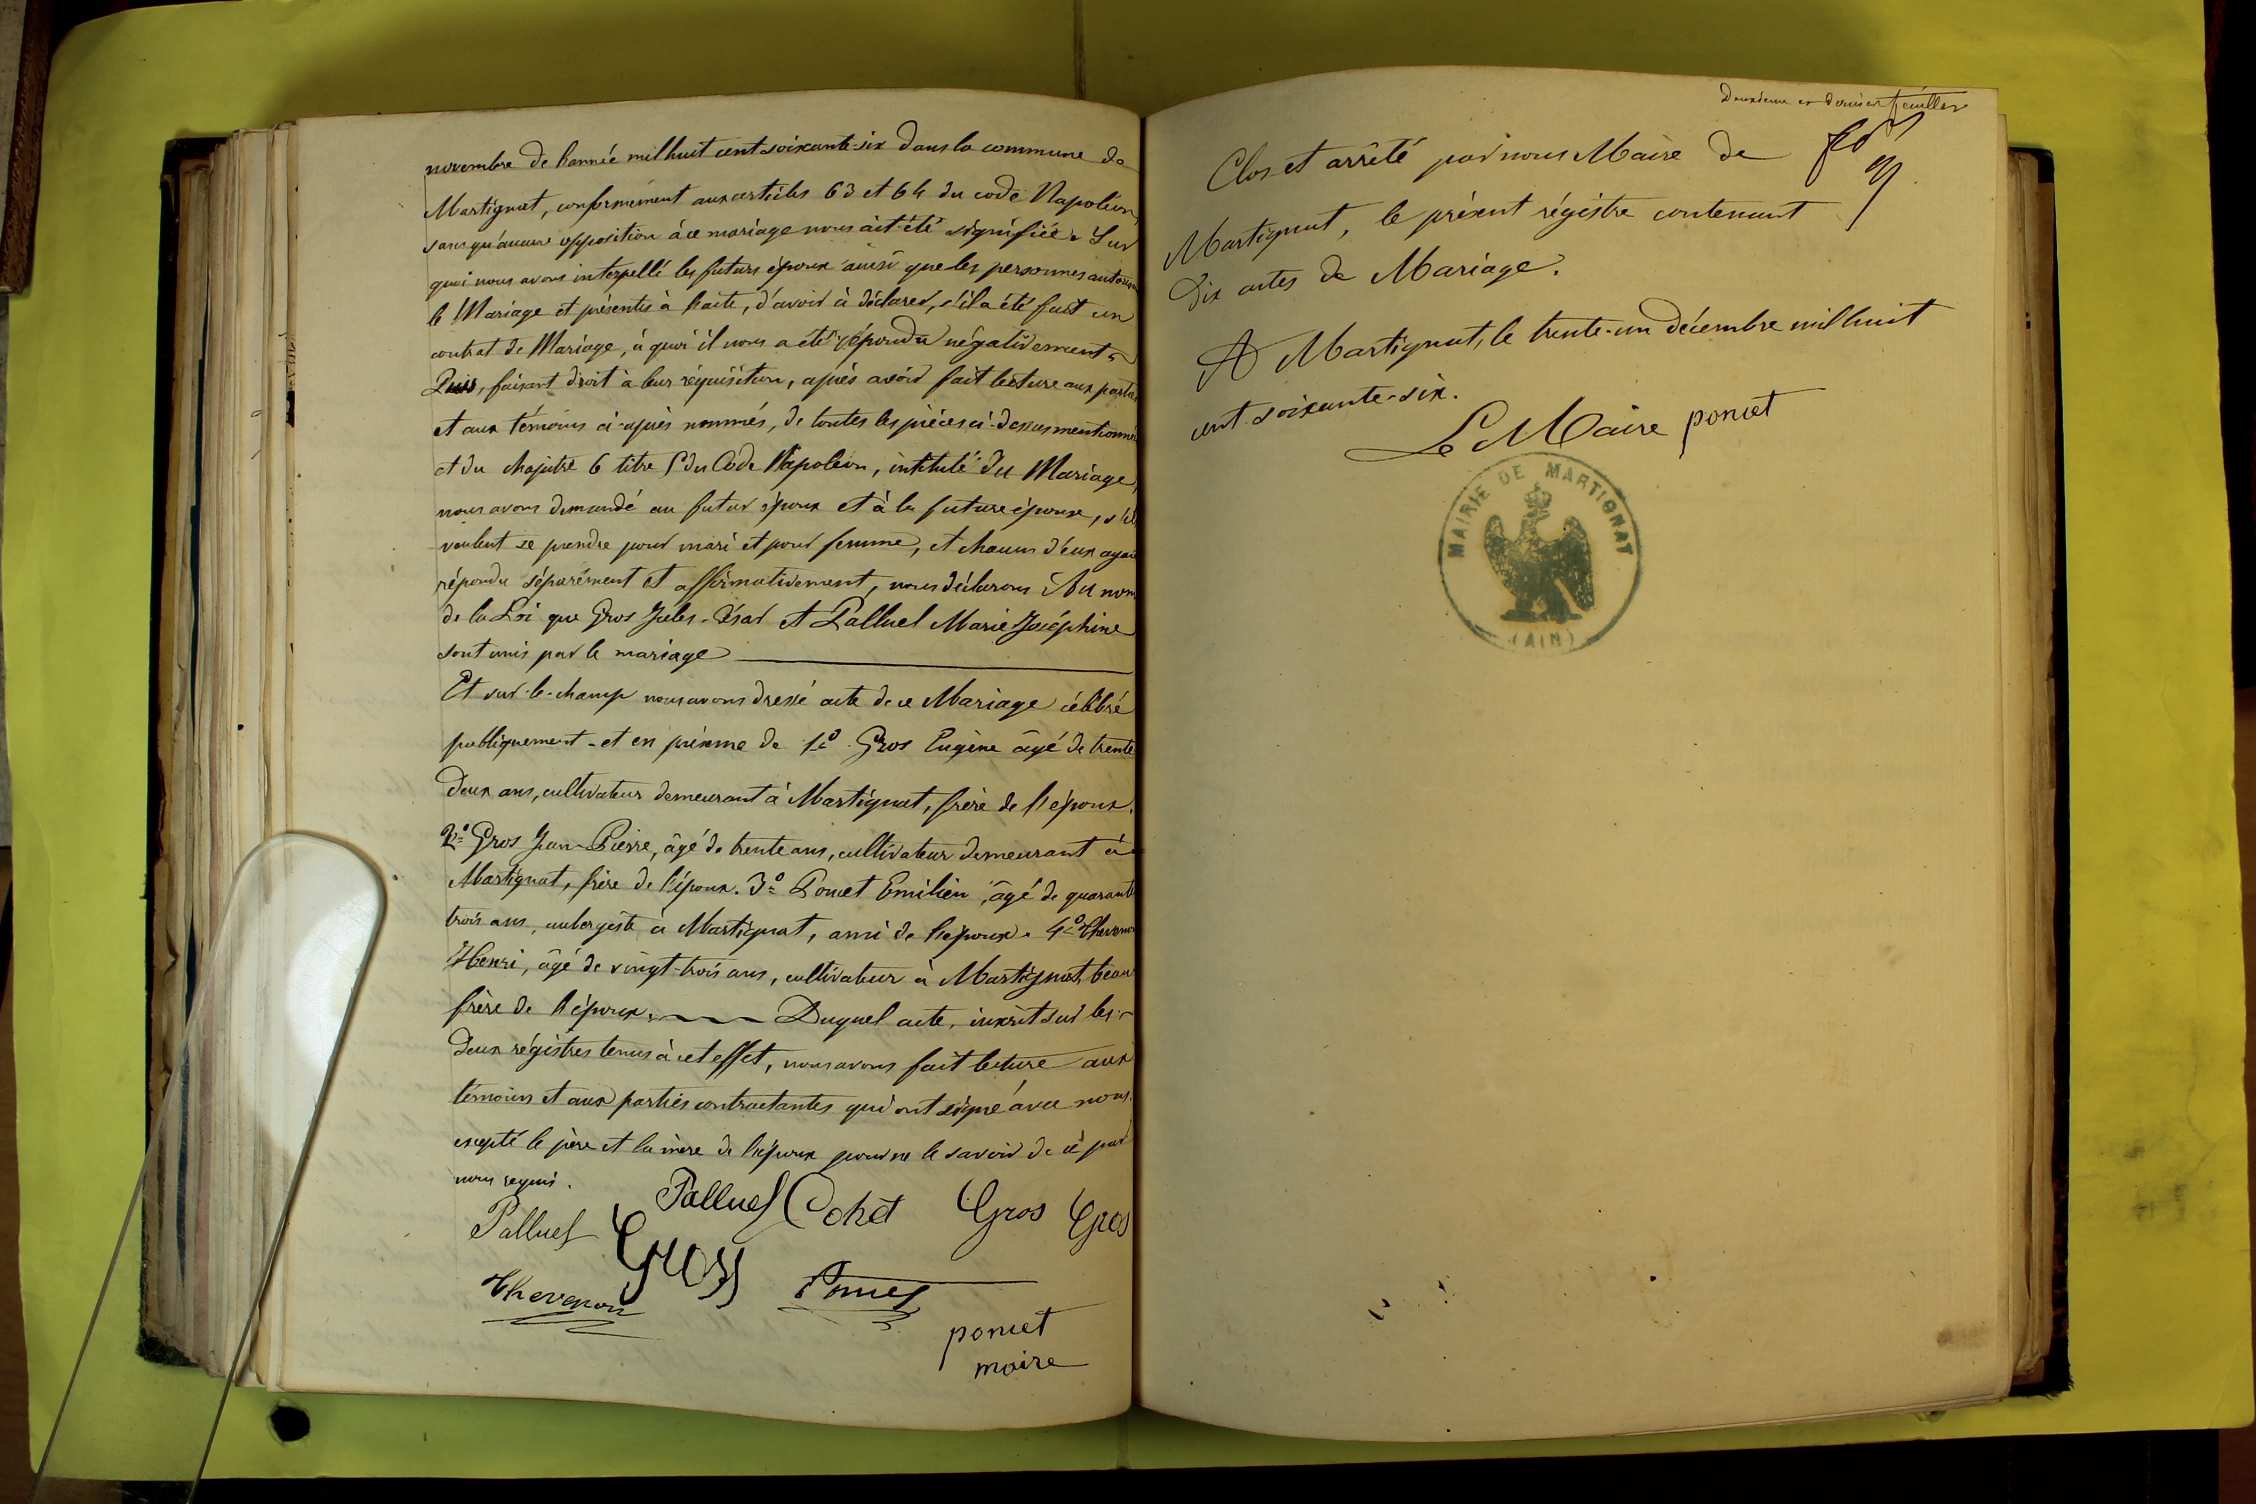 novembre de l'année mil huit cent soixante-six dans la commune de
Martignat, conformément aux articles 63 et 64 du code Napoléon,
sans qu'aucune opposition à ce mariage nous ait été signifiée. Sur
quoi nous avons interpellé les futurs époux ainsi que les personnes autorisant
le Mariage et présentes à l'acte, d'avoir à déclarer, s'il a été fait un
contrat de Mariage, à quoi il nous a été répondu négativement
Puis, faisant droit à leur réquisition, après avoir fait lecture aux parties
et aux témoins ci-après nommés, de toutes les pièces ci-dessus mentionnées
et du chapitre 6 titre 5 du Code Napoléon, intitulé du Mariage,
nous avons demandé au futur époux et à la future épouse, s'ils
veulent se prendre pour mari et pour femme, et chacun d'eux ayant
répondu séparément et affirmativement, nous déclarons Au nom
de la Loi que Gros Jules-César et Palluel Marie Joséphine
sont unis par le mariage
Et sur-le-champ nous avons dressé acte de ce Mariage célébré
publiquement et en présence de 1º Gros Eugène âgé de trente
deux ans, cultivateur demeurant à Martignat, frère de l'époux.
2º Gros Jean-Pierre, âgé de trente ans, cultivateur demeurant à
Martignat, frère de l'époux. 3º Poncet Emilien, âgé de quarante
trois ans, aubergiste à Martignat, ami de l'époux. 4º Thevenon
Henri, âgé de vingt-trois ans, cultivateur à Martignat, beau
frère de l'époux. Duquel acte, inscrit sur les
deux régistres tenus à cet effet, nous avons fait lecture aux
témoins et aux parties contractantes qui ont signé avec nous.
excepté le père et la mère de l'époux pour ne le savoir de ce par
nous requis.
Palluel Cohet Gros Gros
Palluel Gros
Thevenon
poncet
maire
Deuxième et dernier feuillet
Clos et arrêté par nous Maire de
Martignat, le présent régistre contenant
Dix actes de Mariage.
A Martignat, le trente-un décembre mil huit
cent soixante-six.
Le Maire poncet
MAIRIE DE MARTIGNAT
(AIN)